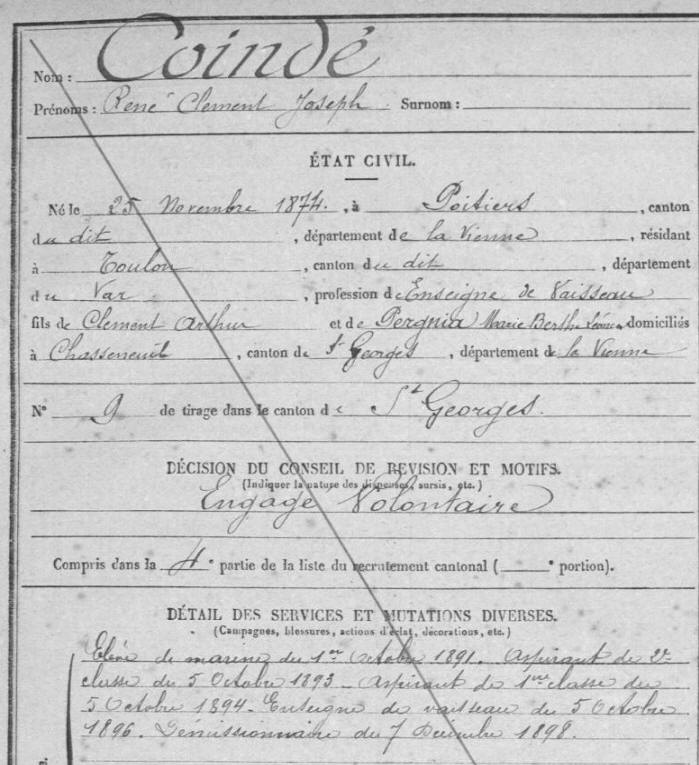 Nom : Coindé
Prénoms : René Clement Joseph Surnom :
ÉTAT CIVIL.
Né le 25 Novembre 1874. , à Poitiers , canton
du dit , département de la Vienne , résidant
à Toulon , canton du dit , département
du Var , profession de Enseigne de Vaisseau
fils de Clement Arthur et de Marie Berthe domiciliés
à Chasseneuil , canton de St Georges , département de la Vienne
N° 9 de tirage dans le canton de St Georges.
DÉCISION DU CONSEIL DE REVISION ET MOTIFS.
(Indiquer la nature des dispenses, sursis, etc.)
Engagé Volontaire
Compris dans la 4e partie de la liste du recrutement cantonal ( e portion).
DÉTAIL DES SERVICES ET MUTATIONS DIVERSES.
(Campagnes, blessures, actions d'éclat, décorations, etc.)
Elève de marine du 1er Octobre 1891. Aspirant de 2e
classe du 5 Octobre 1893 - Aspirant de 1ere classe du
5 Octobre 1894. Enseigne de vaisseau du 5 Octobre
1896. Démissionnaire du 7 Decembre 1898.